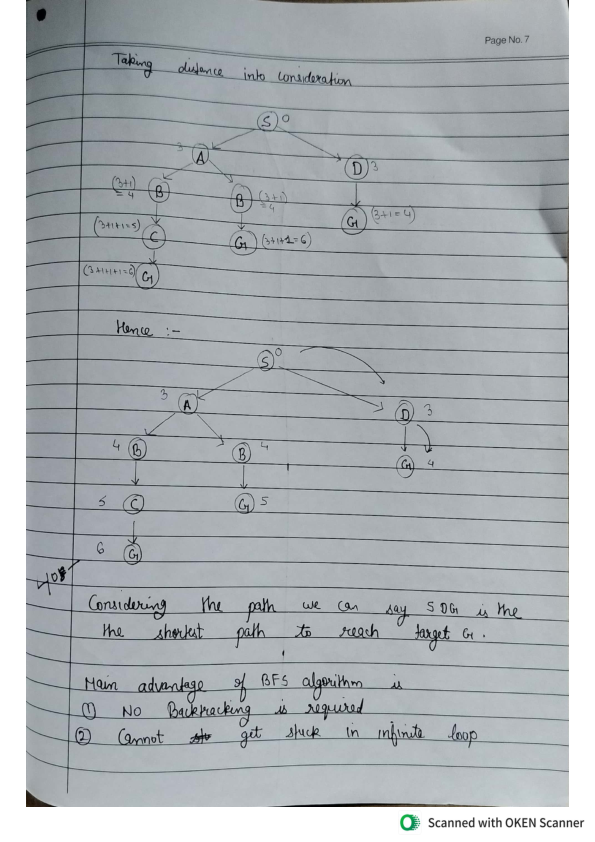 Page No. 7
Taking distance into consideration
S 0
3 A
D 3
(3+1) = 4 B
B (3+1) = 4
G (3+1=4)
(3+1+1=5) C
G (3+1+1=6)
(3+1+1+1=6) G
Hence :-
S 0
3 A
D 3
4 B
B 4
G 4
5 C
G 5
6 G
Considering the path we can say SDG is the
the shortest path to reach target G.
Main advantage of BFS algorithm is
① NO Backtracking is required
② Cannot get stuck in infinite loop
Scanned with OKEN Scanner